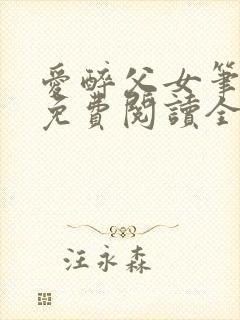 愛醉父女筆
免費閱讀全
汪永森